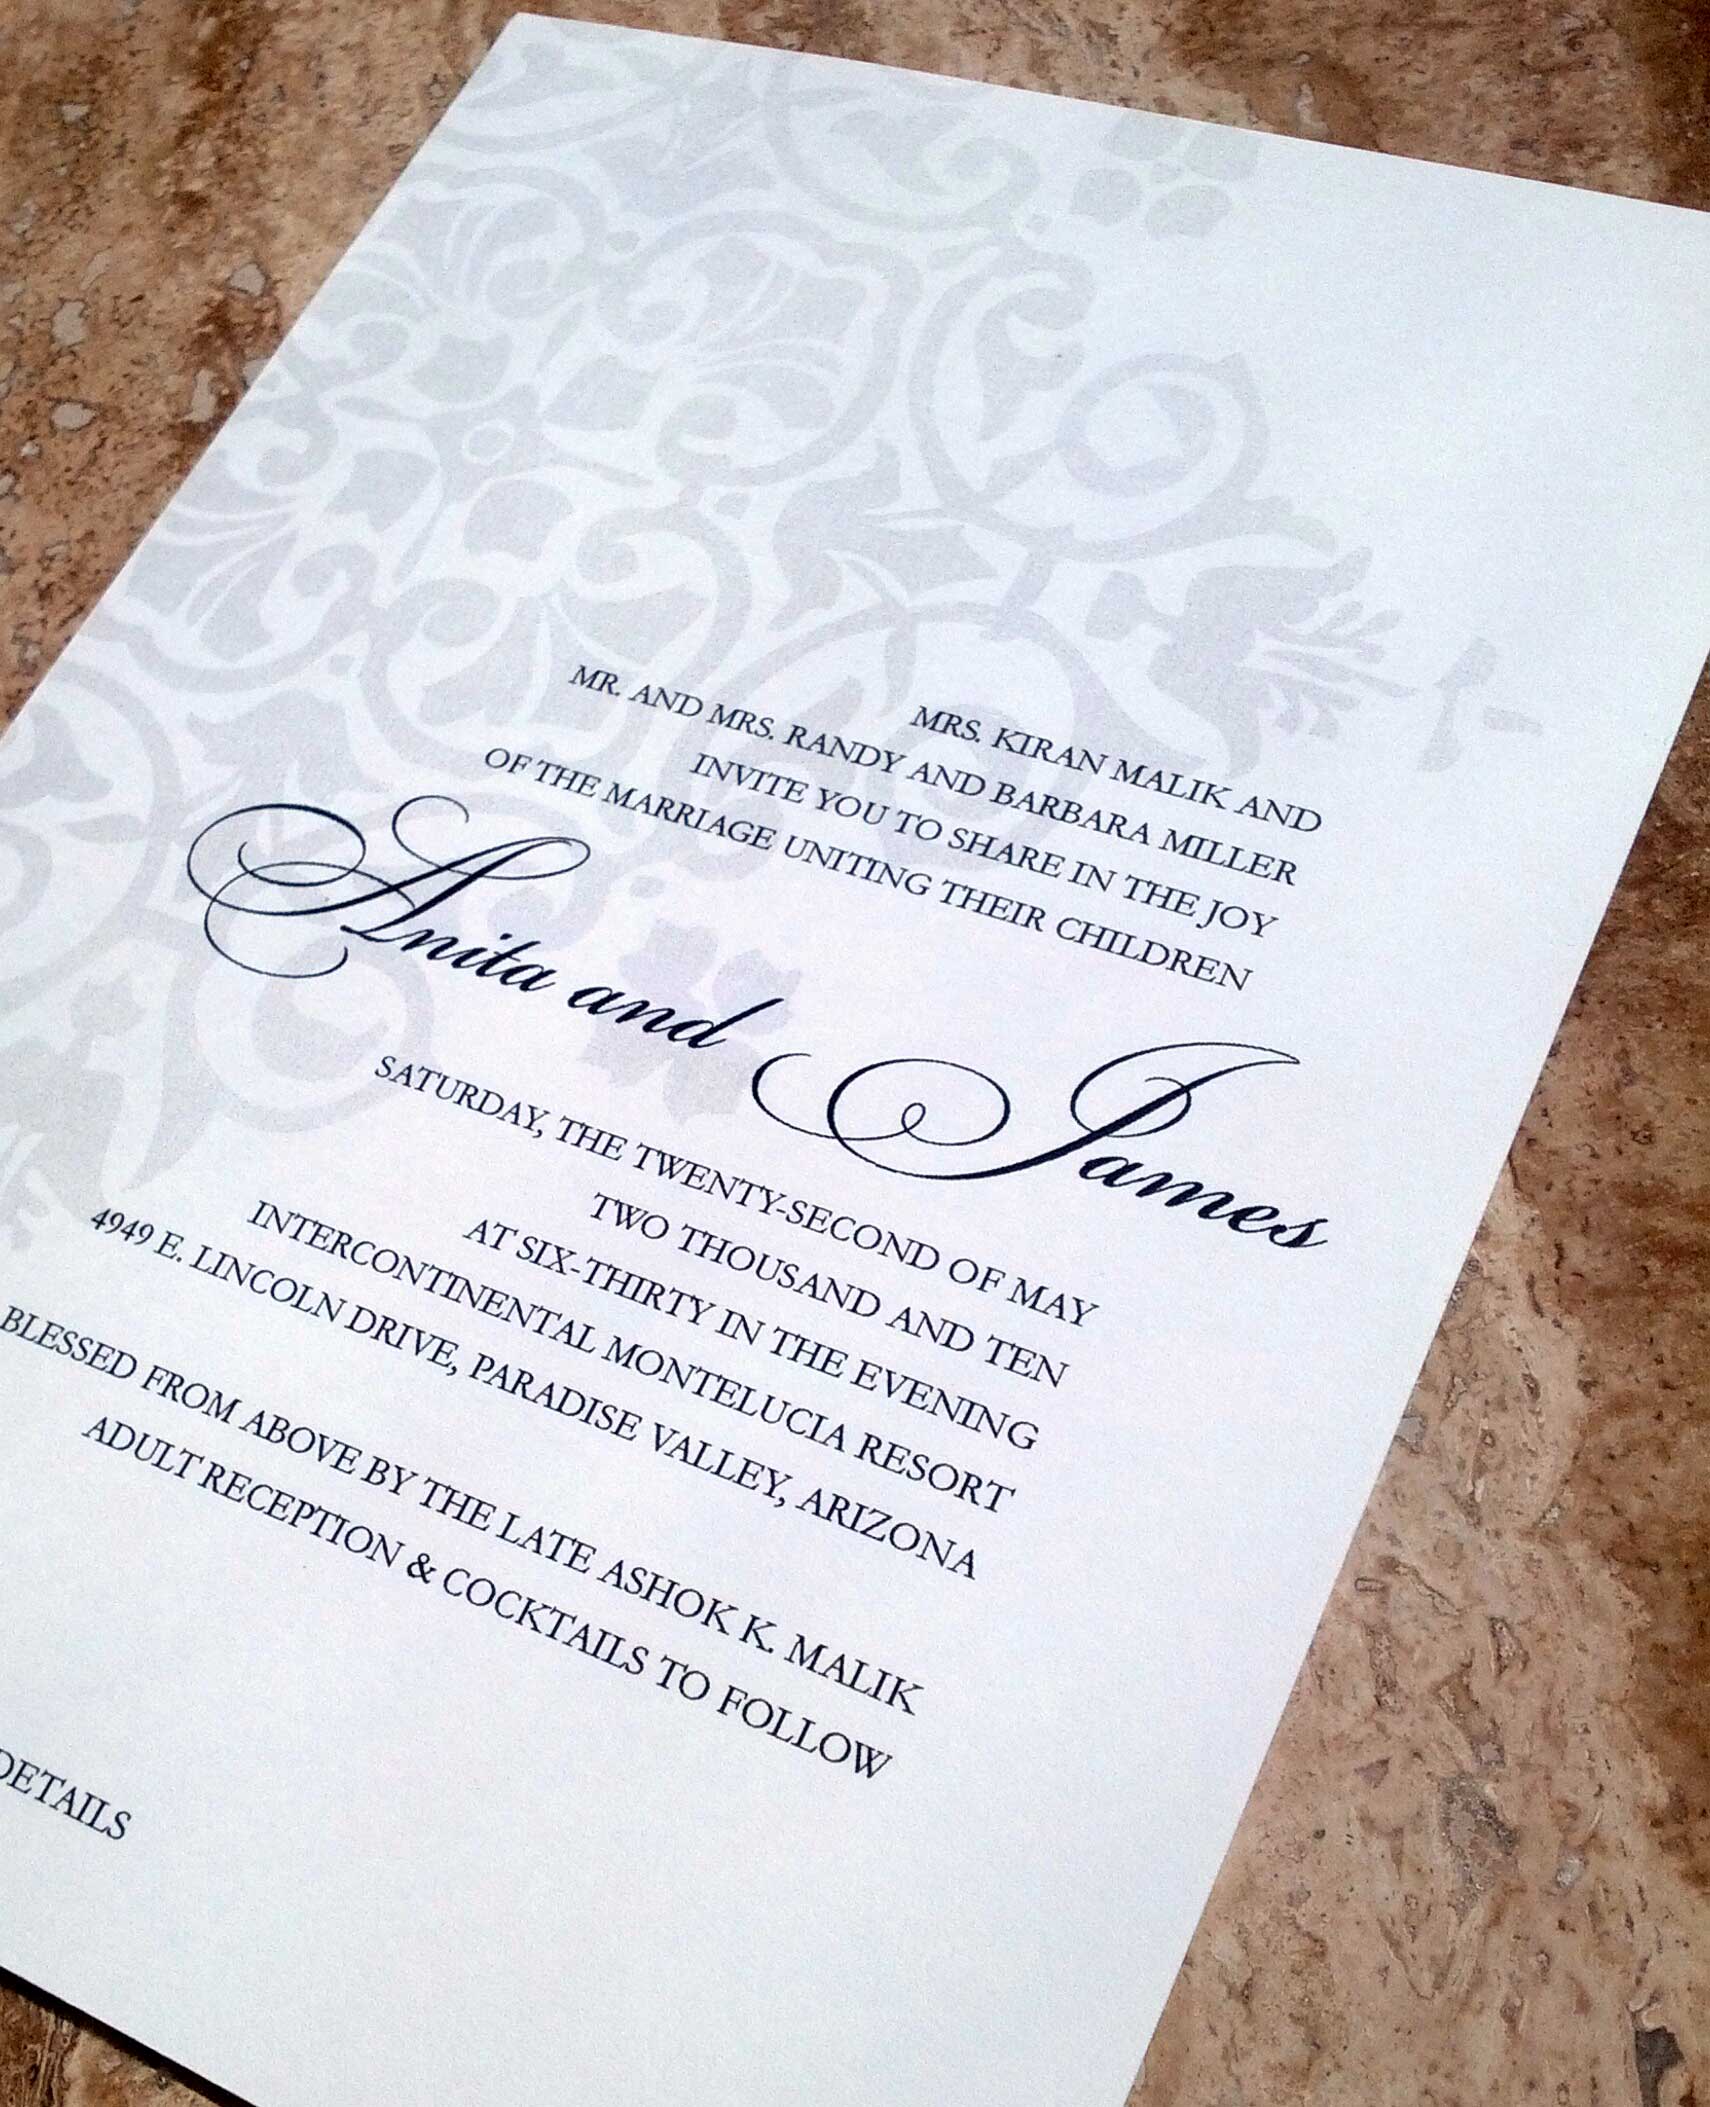 MRS. KIRAN MALIK AND
MR. AND MRS. RANDY AND BARBARA MILLER
INVITE YOU TO SHARE IN THE JOY
OF THE MARRIAGE UNITING THEIR CHILDREN
Anita and James
SATURDAY, THE TWENTY-SECOND OF MAY
TWO THOUSAND AND TEN
AT SIX-THIRTY IN THE EVENING
INTERCONTINENTAL MONTELUCIA RESORT
4949 E. LINCOLN DRIVE, PARADISE VALLEY, ARIZONA
BLESSED FROM ABOVE BY THE LATE ASHOK K. MALIK
ADULT RECEPTION & COCKTAILS TO FOLLOW
DETAILS